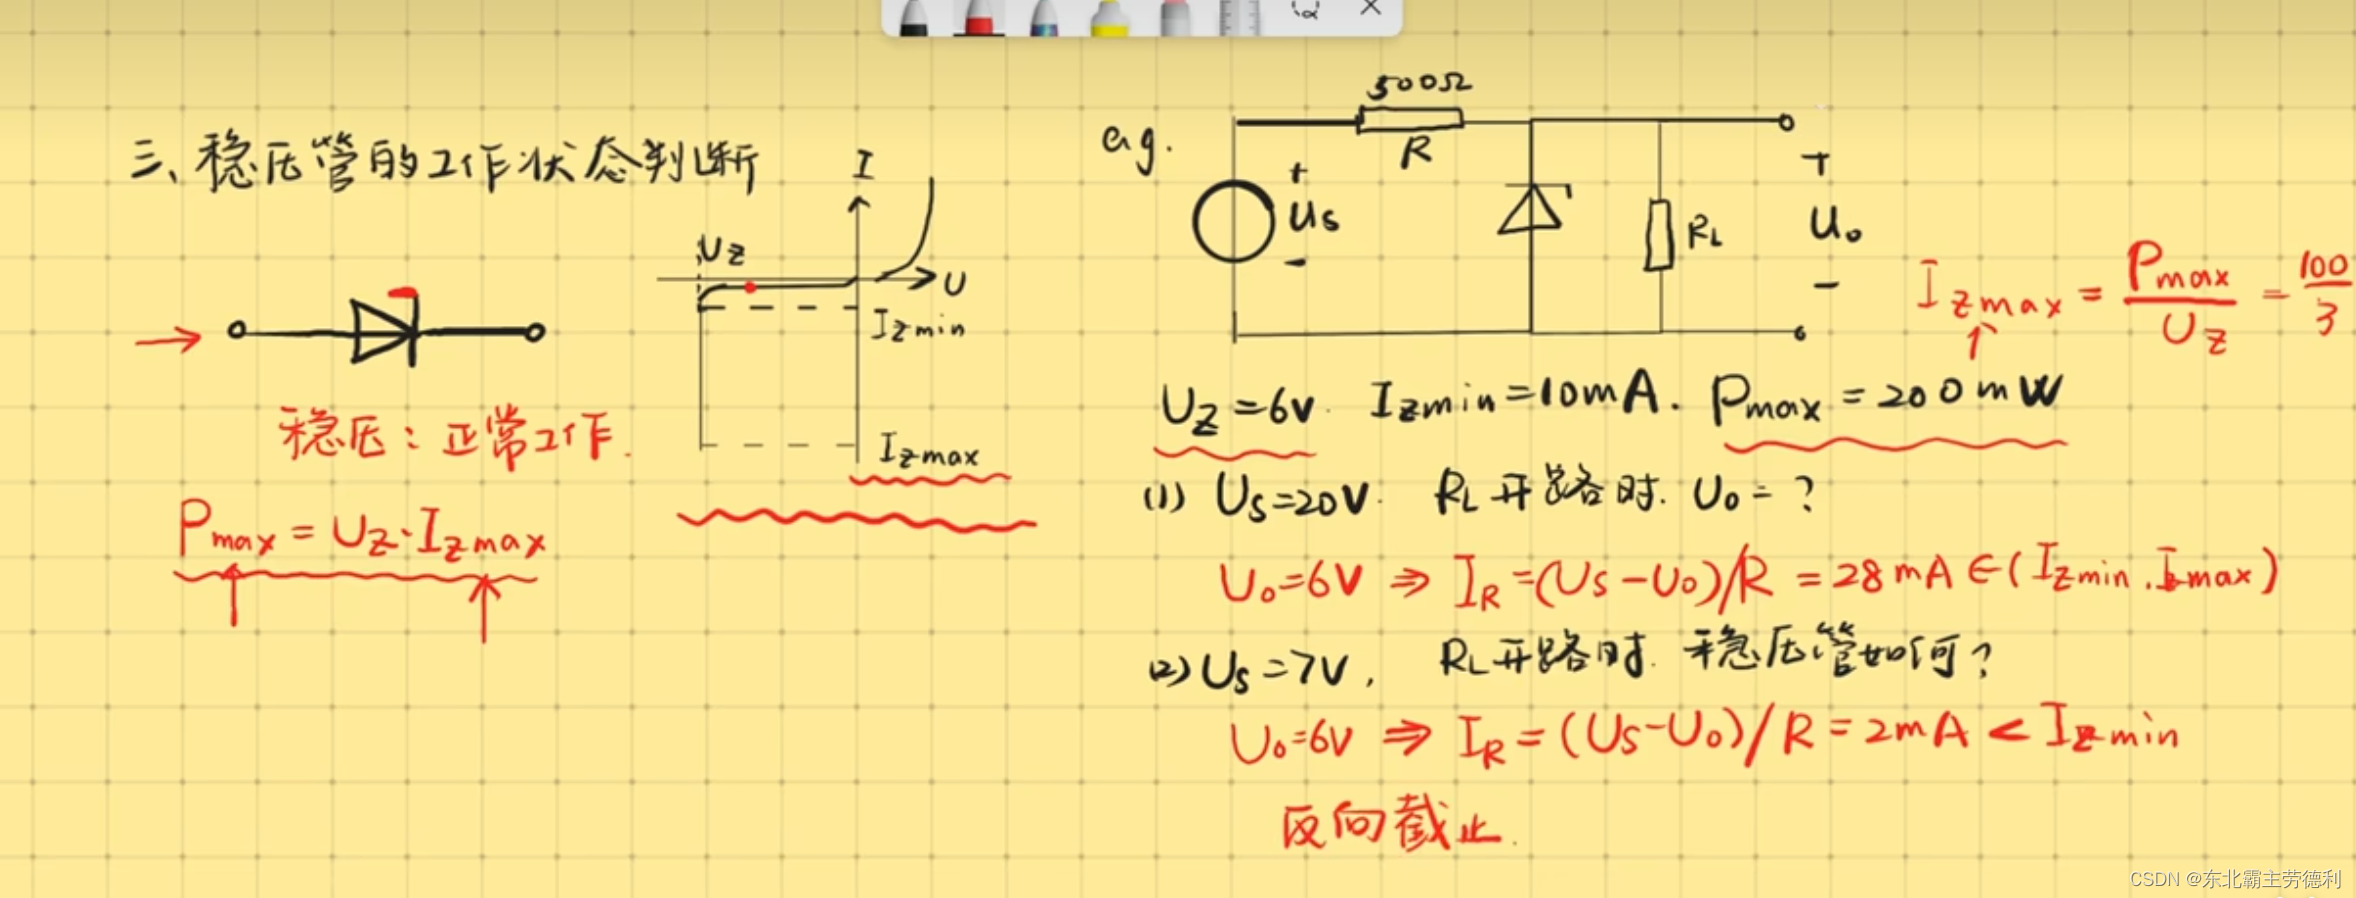 三、稳压管的工作状态判断
I
U
Uz
Izmin
Izmax
稳压：正常工作.
Pmax = Uz·Izmax
e.g.
500Ω
R
+
Us
-
RL
+
Uo
-
Izmax = Pmax/Uz = 100/3
Uz=6V Izmin=10mA. Pmax=200mW
(1) Us=20V. RL开路时. Uo=?
Uo=6V ⇒ IR=(Us-Uo)/R=28mA∈(Izmin.Izmax)
(2) Us=7V, RL开路时. 稳压管如何?
Uo=6V ⇒ IR=(Us-Uo)/R=2mA<Izmin
反向截止.
CSDN @东北霸主劳德利